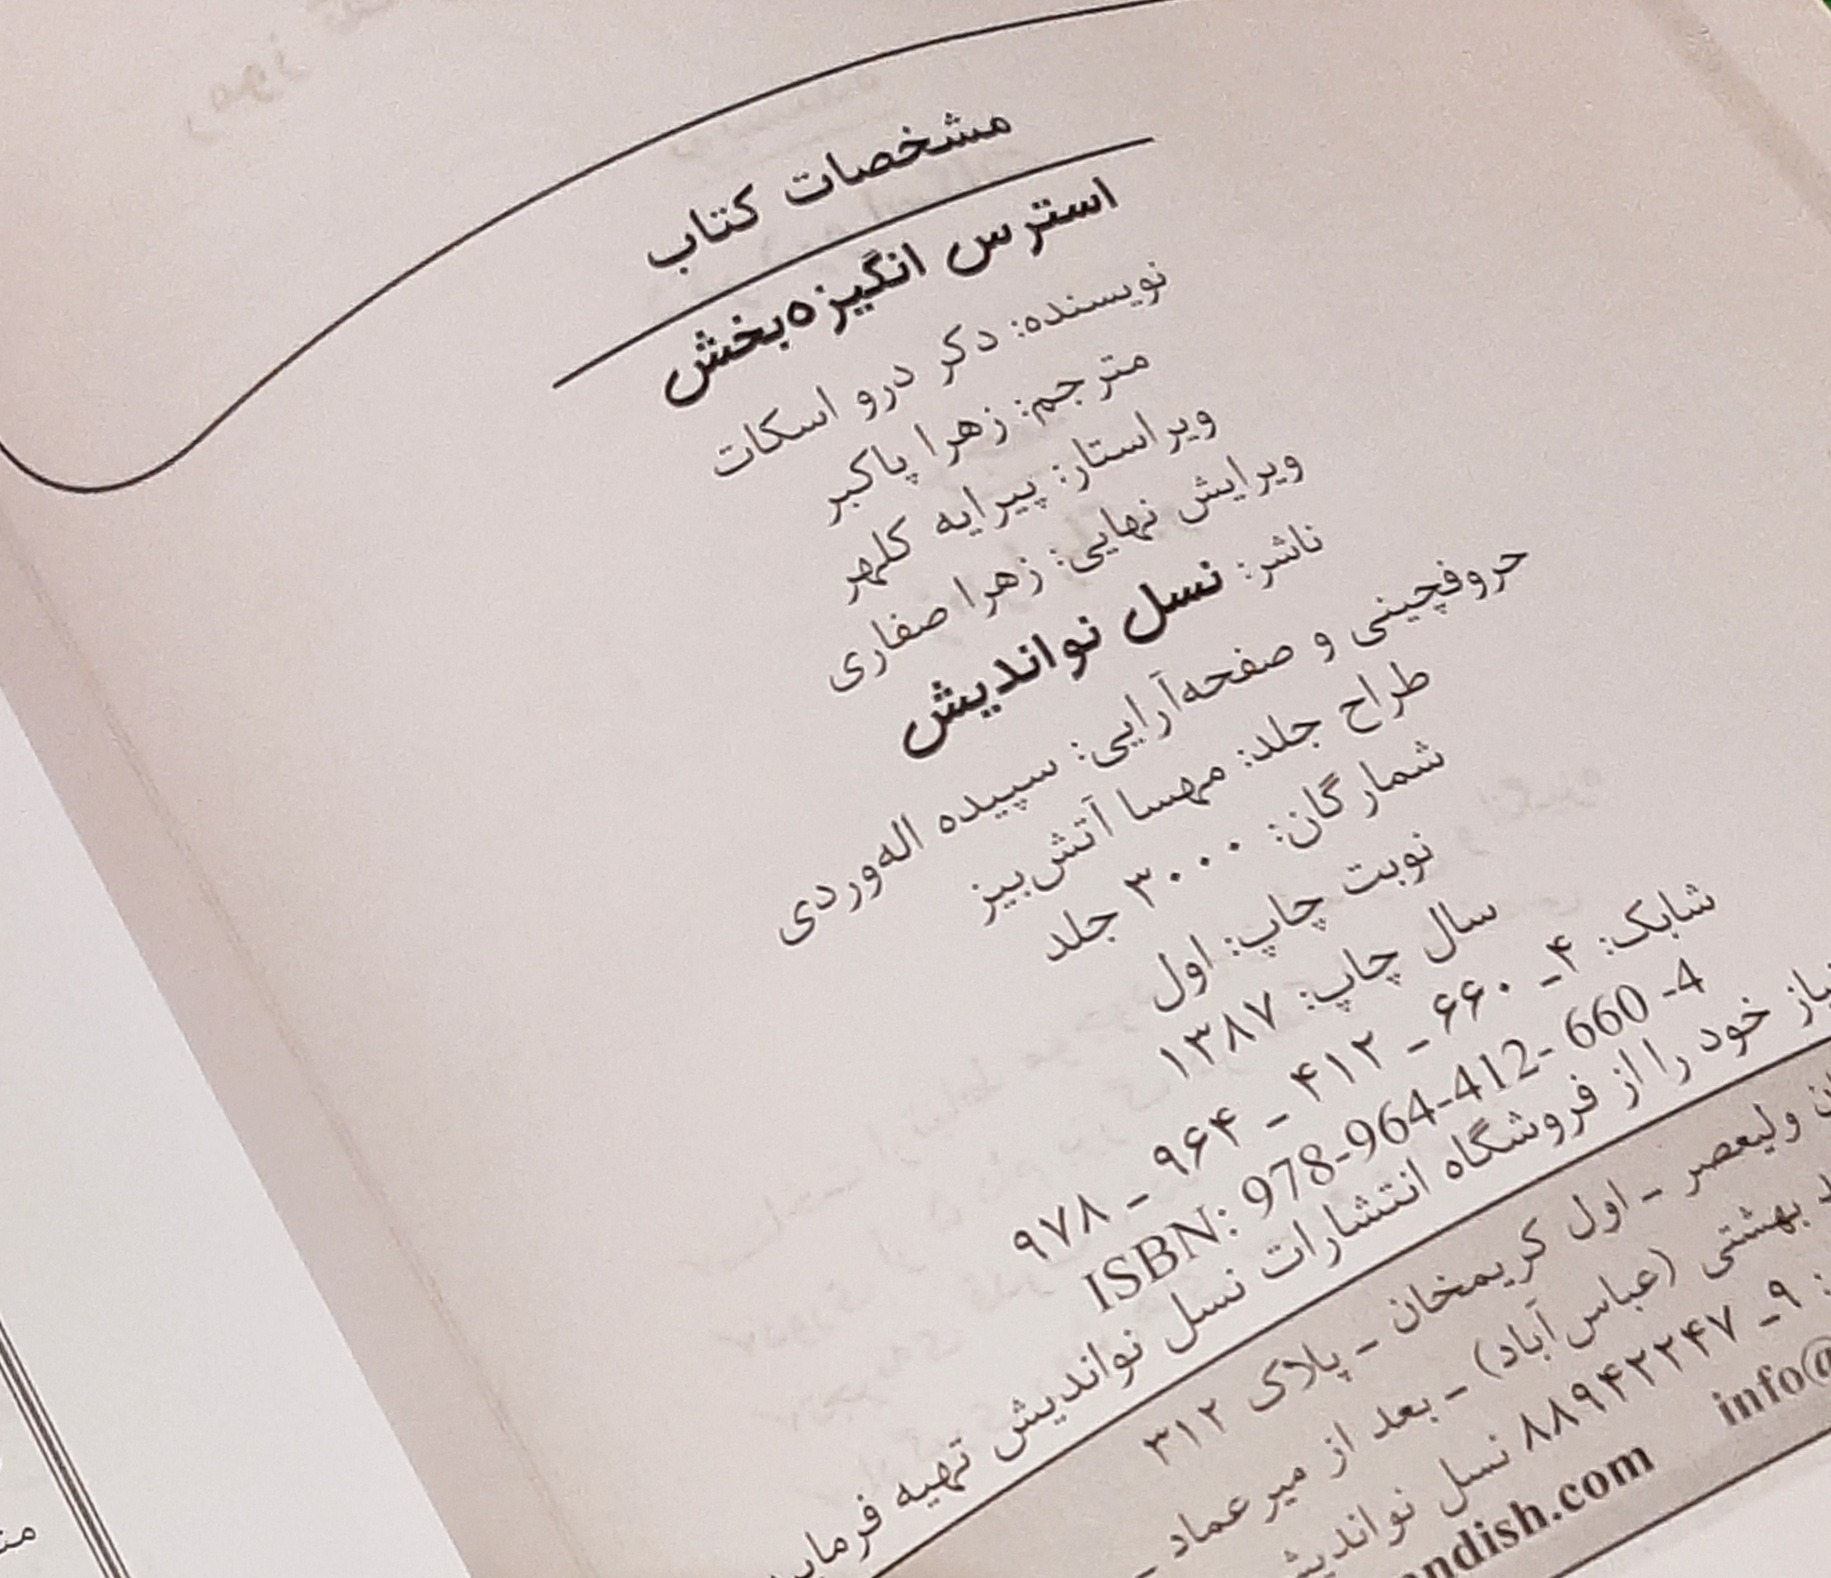 مشخصات کتاب
استرس انگیزه‌بخش
نویسنده: دکر درو اسکات
مترجم: زهرا پاکبر
ویراستار: پیرایه کلهر
ویرایش نهایی: زهرا صفاری
ناشر: نسل نواندیش
حروفچینی و صفحه‌آرایی: سپیده اله‌وردی
طراح جلد: مهسا آتش‌بیز
شمارگان: ۳۰۰۰ جلد
نوبت چاپ: اول
سال چاپ: ۱۳۸۷
شابک: ۴ـ ۶۶۰ ـ ۴۱۲ ـ ۹۶۴ ـ ۹۷۸
ISBN: 978-964-412- 660 -4
خود را از فروشگاه انتشارات نسل نواندیش تهیه
ولیعصر ـ اول کریمخان ـ پلاک ۳۱۲
بهشتی (عباس‌آباد) ـ بعد از میرعماد ـ
۹ـ ۸۸۹۴۲۲۴۷ نسل
ndish.com info@